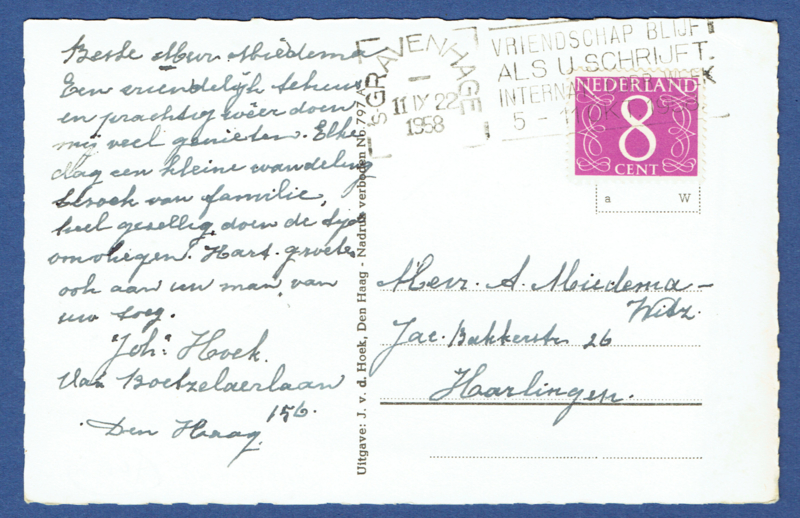 Beste Mevr. Miedema
Een vriendelijk tehuis
en prachtig wéér doen
mij veel genieten. Elke
dag een kleine wandeling
bezoek van familie,
heel gezellig doen de tijd
omvliegen. Hart. groeten
ook aan uw man, van
uw
"Joh." Hoek.
Van Boetzelaerlaan
156.
Den Haag.
Uitgave: J. v. d. Hoek, Den Haag - Nadruk verboden No. 797 A
'SGRAVENHAGE
11 IX 22
1958
VRIENDSCHAP BLIJFT
ALS U SCHRIJFT.
5 - 11 OKT 1958
NEDERLAND
8
CENT
a W
Mevr. A. Miedema-
Witz.
Jac. Bakkerstr 26
Harlingen.